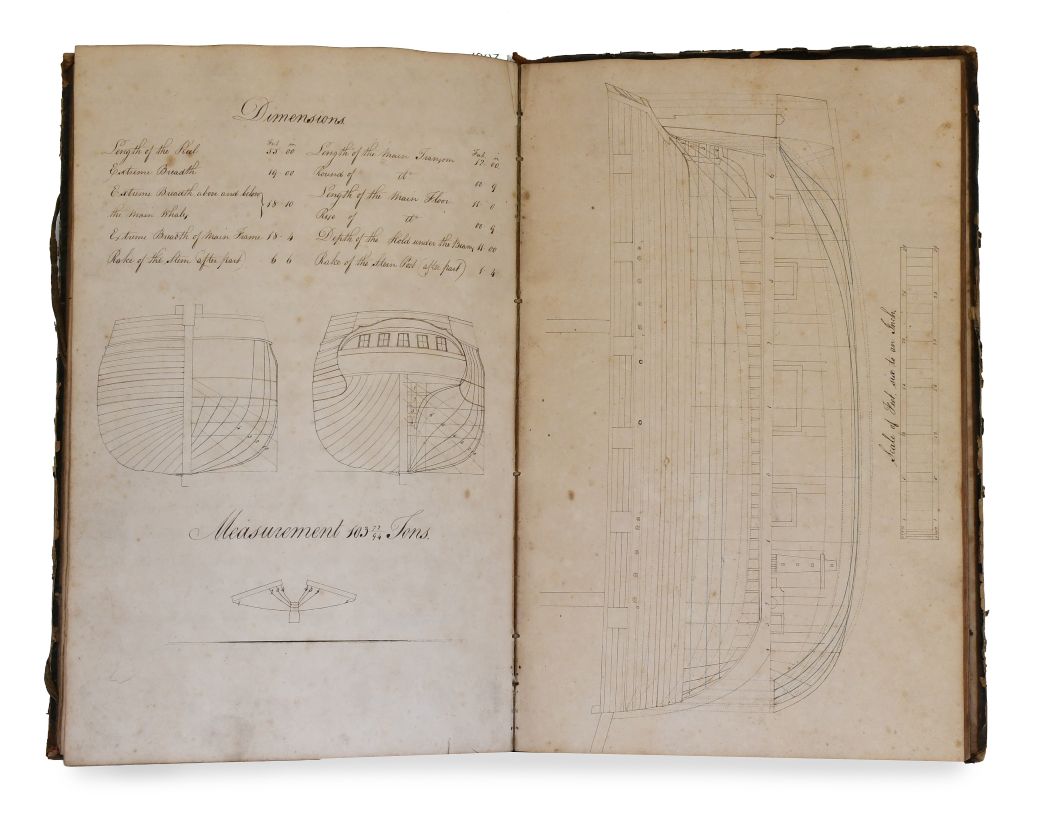 Dimensions
Feet in
Length of the Keel 55 00
Extreme Breadth 19 00
Extreme Breadth above and below
the Main Whales } 18 - 10
Extreme Breadth of Main Frame 18 - 4
Rake of the Stem after part) 6 6
Feet in
Length of the Main Transom 12 00
Round of Do 00 9
Length of the Main Floor 11 0
Rise of Do 00 9
Depth of the Hold under the Beams 11 00
Rake of the Stern Post (after part) 1 4
Measurement 103 77/94 Tons.
Scale of Feet six to an Inch.